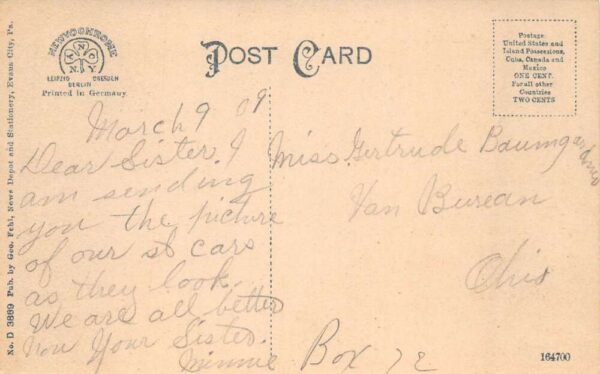 NEWVOCHROME
A N C O
N Y
LEIPZIG DRESDEN
BERLIN
Printed in Germany
POST CARD
Postage
United States and
Island Possessions,
Cuba, Canada and
Mexico
ONE CENT.
For all other
Countries
TWO CENTS
No. D 3869 Pub. by Geo. Fehl, News Depot and Stationery, Evans City, Pa.
March 9 09
Dear Sister. I
am sending
you the picture
of our st cars
as they look.
We are all better
now Your Sister.
Minnie
Miss Gertrude Baumgardner
Van Burean
Ohio
Box 72
164700